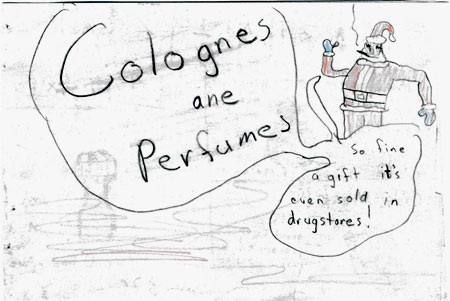 Colognes
ane
Perfumes
So fine
a gift it's
even sold in
drugstores!